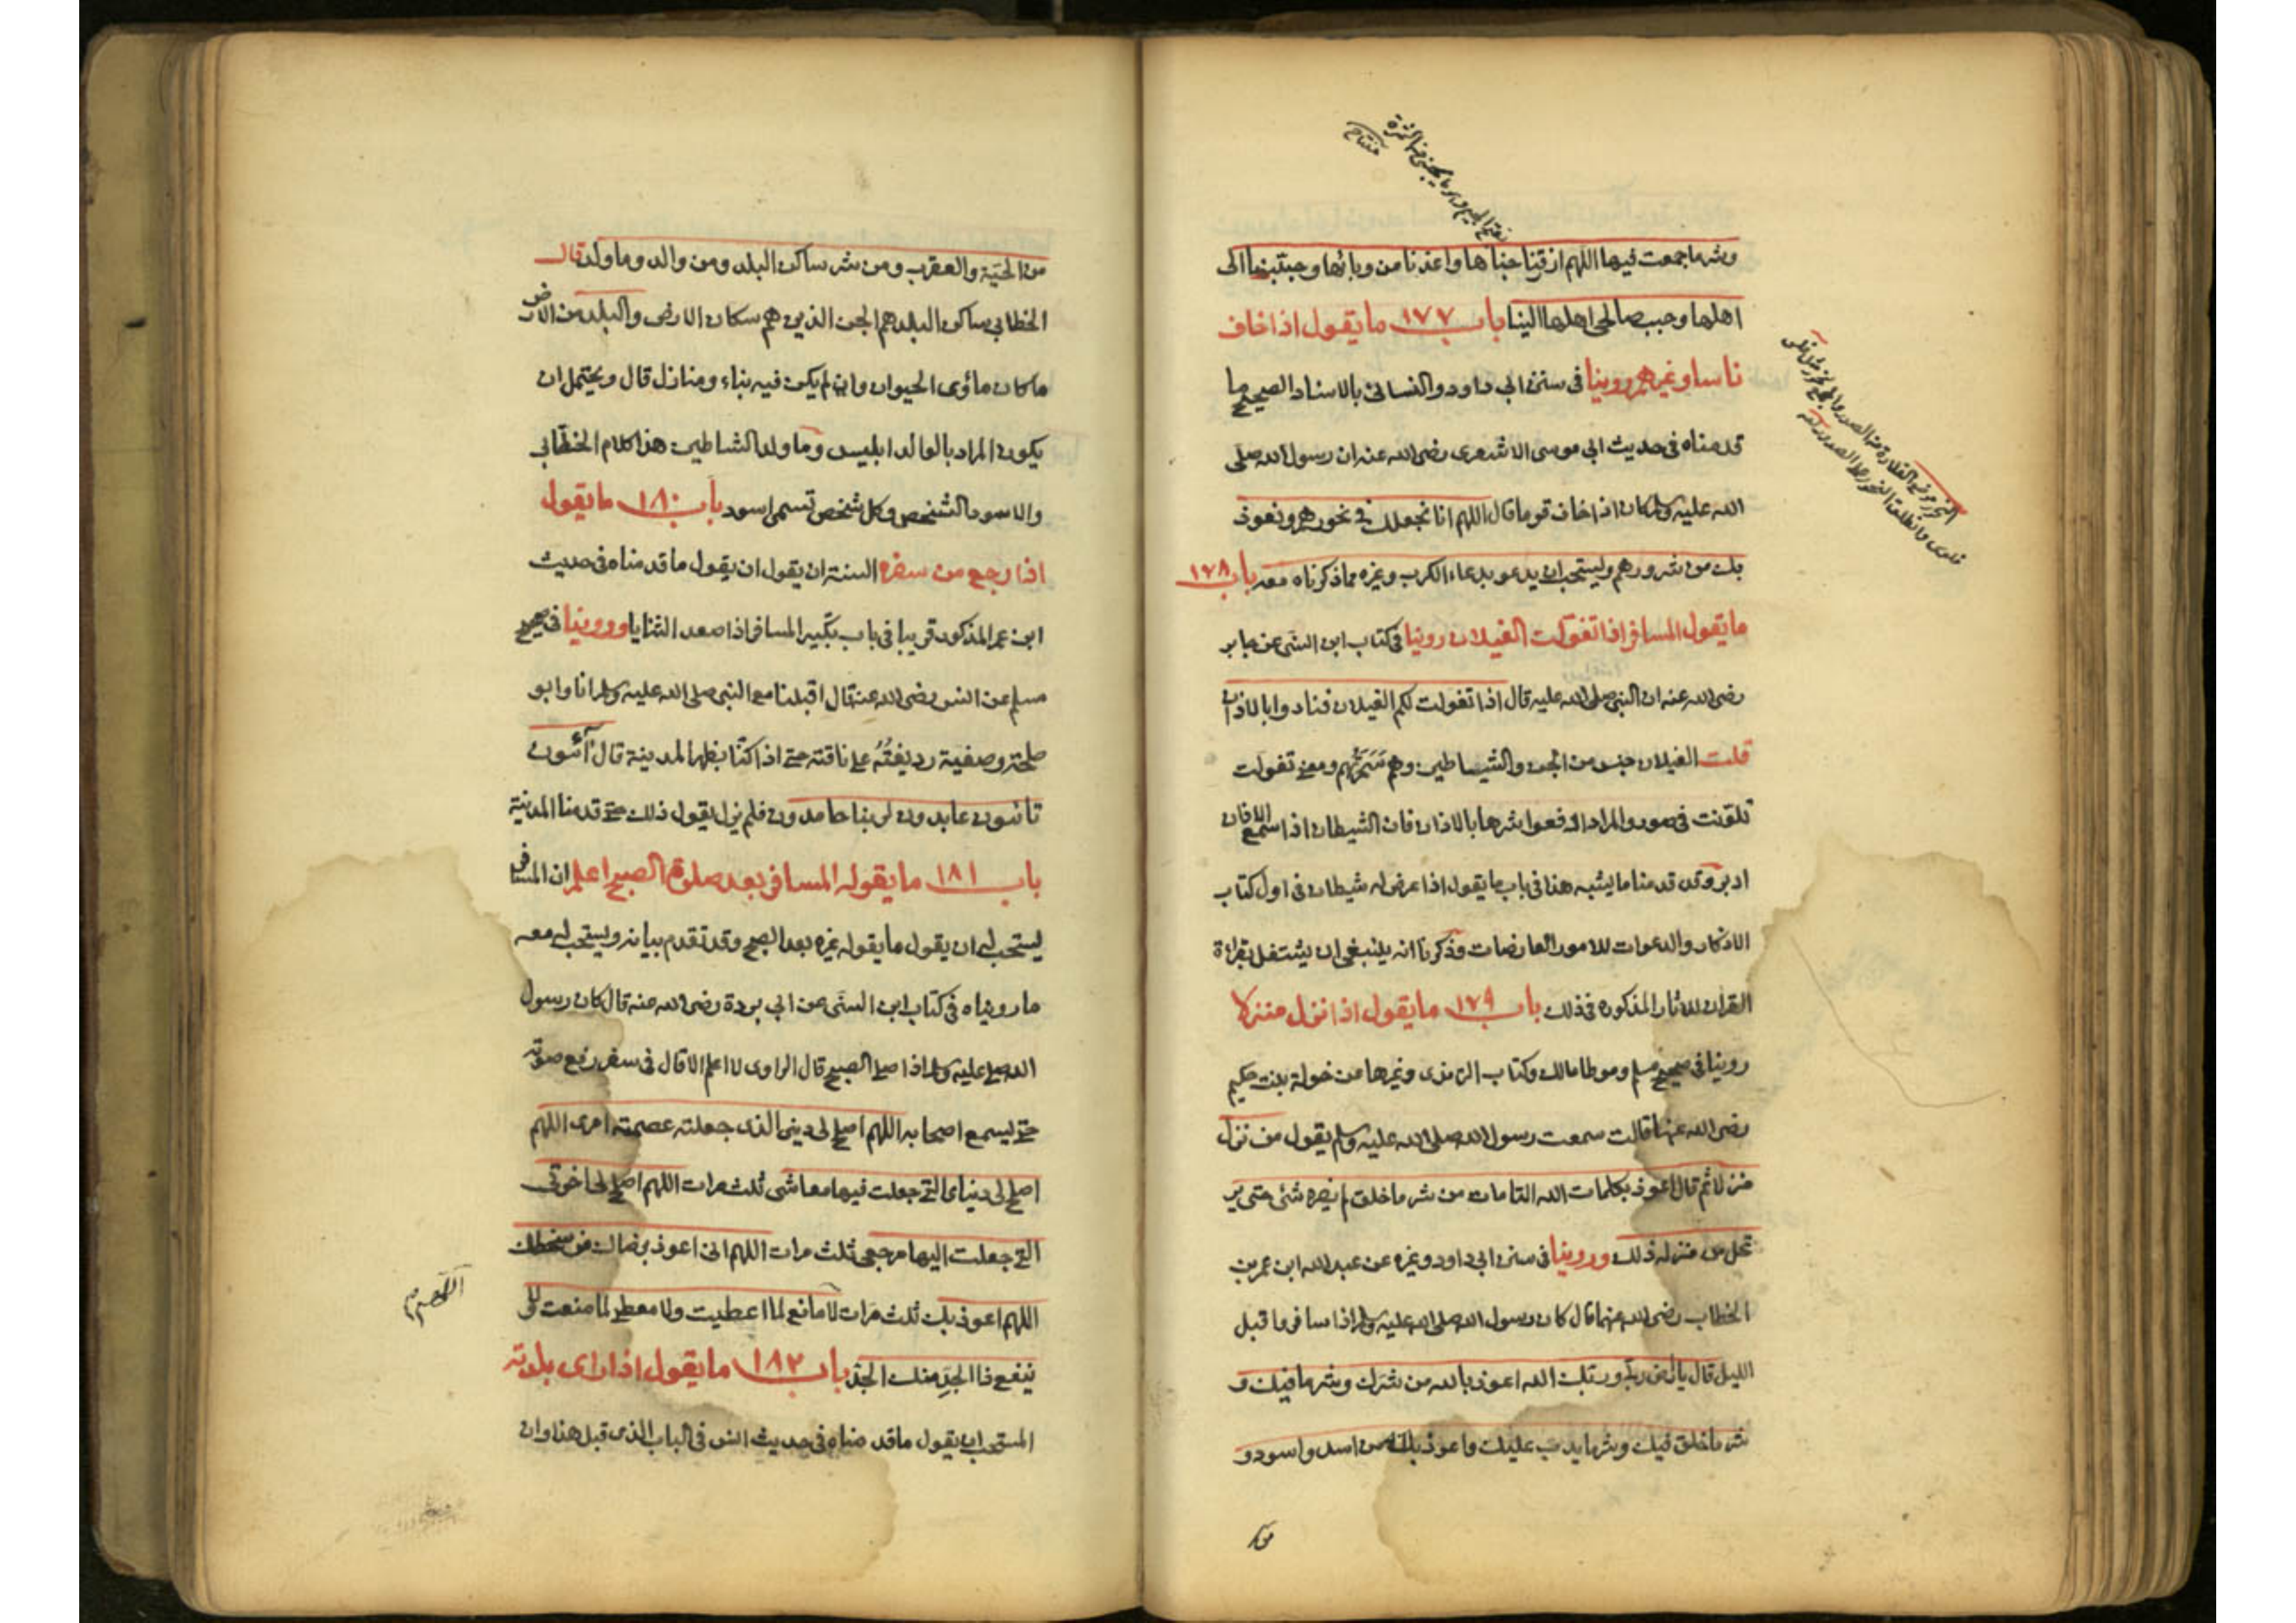 وشر ما جمعت فيها اللهم ارزقنا جناها واعذنا من وبائها وحببنا الى
اهلها وحبب صالحى اهلها الينا باب ١٧٧ ما يقول اذا خاف
ناسا او غيرهم روينا فى سنن ابى داود والنسائى بالاسناد الصحيح ما
قدمناه فى حديث ابى موسى الاشعرى رضى الله عنه ان رسول الله صلى
الله عليه وسلم كان اذا خاف قوما قال اللهم انا نجعلك فى نحورهم ونعوذ
بك من شرورهم ويستحب ان يدعو بدعاء الكرب وغيره مما ذكرناه معه باب ١٧٨
ما يقول المسافر اذا تغولت الغيلان روينا فى كتاب ابن السنى عن جابر
رضى الله عنه ان النبى صلى الله عليه قال اذا تغولت لكم الغيلان فنادوا بالاذان
قلت الغيلان جنس من الجن والشياطين وهم سحرتهم ومعنى تغولت
تلونت فى صور والمراد ادفعوا شرها بالاذان فان الشيطان اذا سمع الاذان
ادبر وقد قدمنا ما يشبه هذا فى باب ما يقول اذا عرض له شيطان فى اول كتاب
الاذكار والدعوات للامور العارضات وذكرنا انه ينبغى ان يشتغل بقراة
القران للاثار المذكورة فى ذلك باب ١٧٩ ما يقول اذا نزل منزلا
روينا فى صحيح مسلم وموطا مالك وكتاب الترمذى وغيرها عن خولة بنت حكيم
رضى الله عنها قالت سمعت رسول الله صلى الله عليه وسلم يقول من نزل
منزلا ثم قال اعوذ بكلمات الله التامات من شر ما خلق لم يضره شئ حتى ير
تحل من منزله ذلك وروينا فى سنن ابى داود وغيره عن عبد الله ابن عمر بن
الخطاب رضى الله عنهما قال كان رسول الله صلى الله عليه وسلم اذا سافر فاقبل
الليل قال يا ارض ربى وربك الله اعوذ بالله من شرك وشر ما فيك و
شر ما خلق فيك وشر ما يدب عليك واعوذ بالله من اسد واسود و
من الحية والعقرب ومن شر ساكن البلد ومن والد وما ولد قال
الخطابى ساكن البلد هم الجن الذين هم سكان الارض والبلد من الارض
ما كان ماؤى الحيوان وان لم يكن فيه بناء ومنازل قال ويحتمل ان
يكون المراد بالوالد ابليس وما ولد الشياطين هذا كلام الخطابى
والاسود الشخص وكل شخص تسمى اسود باب ١٨٠ ما يقول
اذا رجع من سفره السنة ان يقول ان يقول ما قدمناه فى حديث
ابن عمر المذكور قريبا فى باب تكبير المسافر اذا صعد الثنايا وروينا فى صحيح
مسلم عن انس رضى الله عنه قال اقبلنا مع النبى صلى الله عليه وسلم انا وابو
طلحة وصفية رديفته على ناقته حتى اذا كنا بظهر المدينة قال آئبون
تائبون عابدون لربنا حامدون فلم يزل يقول ذلك حتى قدمنا المدينة
باب ١٨١ ما يقوله المسافر بعد صلوة الصبح اعلم ان المسافر
يستحب له ان يقول ما يقوله غيره بعد الصبح وقد تقدم بيانه ويستحب له معه
ما رويناه فى كتاب ابن السنى عن ابى بردة رضى الله عنه قال كان رسول
الله صلى عليه وسلم اذا صلى الصبح قال الراوى لا اعلم الا قال فى سفر رفع صوته
حتى يسمع اصحابه اللهم اصلح لى دينى الذى جعلته عصمة امرى اللهم
اصلح لى دنياى التى جعلت فيها معاشى ثلث مرات اللهم اصلح لى اخرتى
التى جعلت اليها مرجعى ثلث مرات اللهم انى اعوذ برضاك من سخطك
اللهم اعوذ بك ثلث مرات لا مانع لما اعطيت ولا معطى لما منعت ولا
ينفع ذا الجد منك الجد باب ١٨٢ ما يقول اذا راى بلدته
المستحب ان يقول ما قدمناه فى حديث انس فى الباب الذى قبل هذا وان